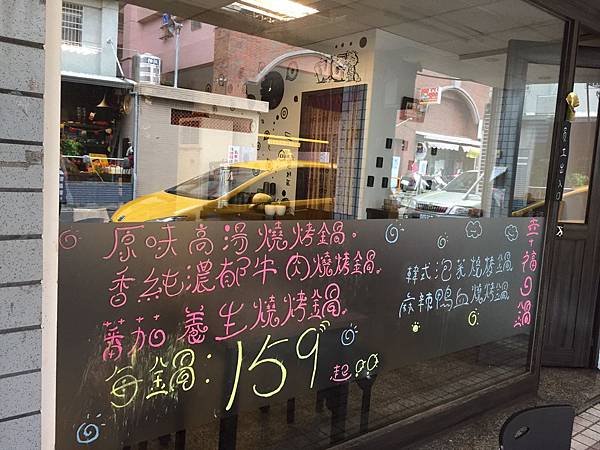 原味高湯燒烤鍋。
香純濃郁牛肉燒烤鍋。
蕃茄養生燒烤鍋。
每鍋：159起
韓式泡菜燒烤鍋
麻辣鴨血燒烤鍋
幸福
鍋